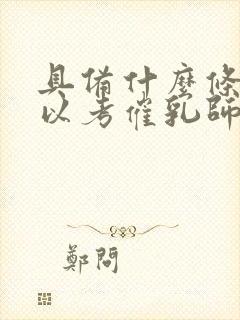 具備什麼條
以考催乳師
鄭問